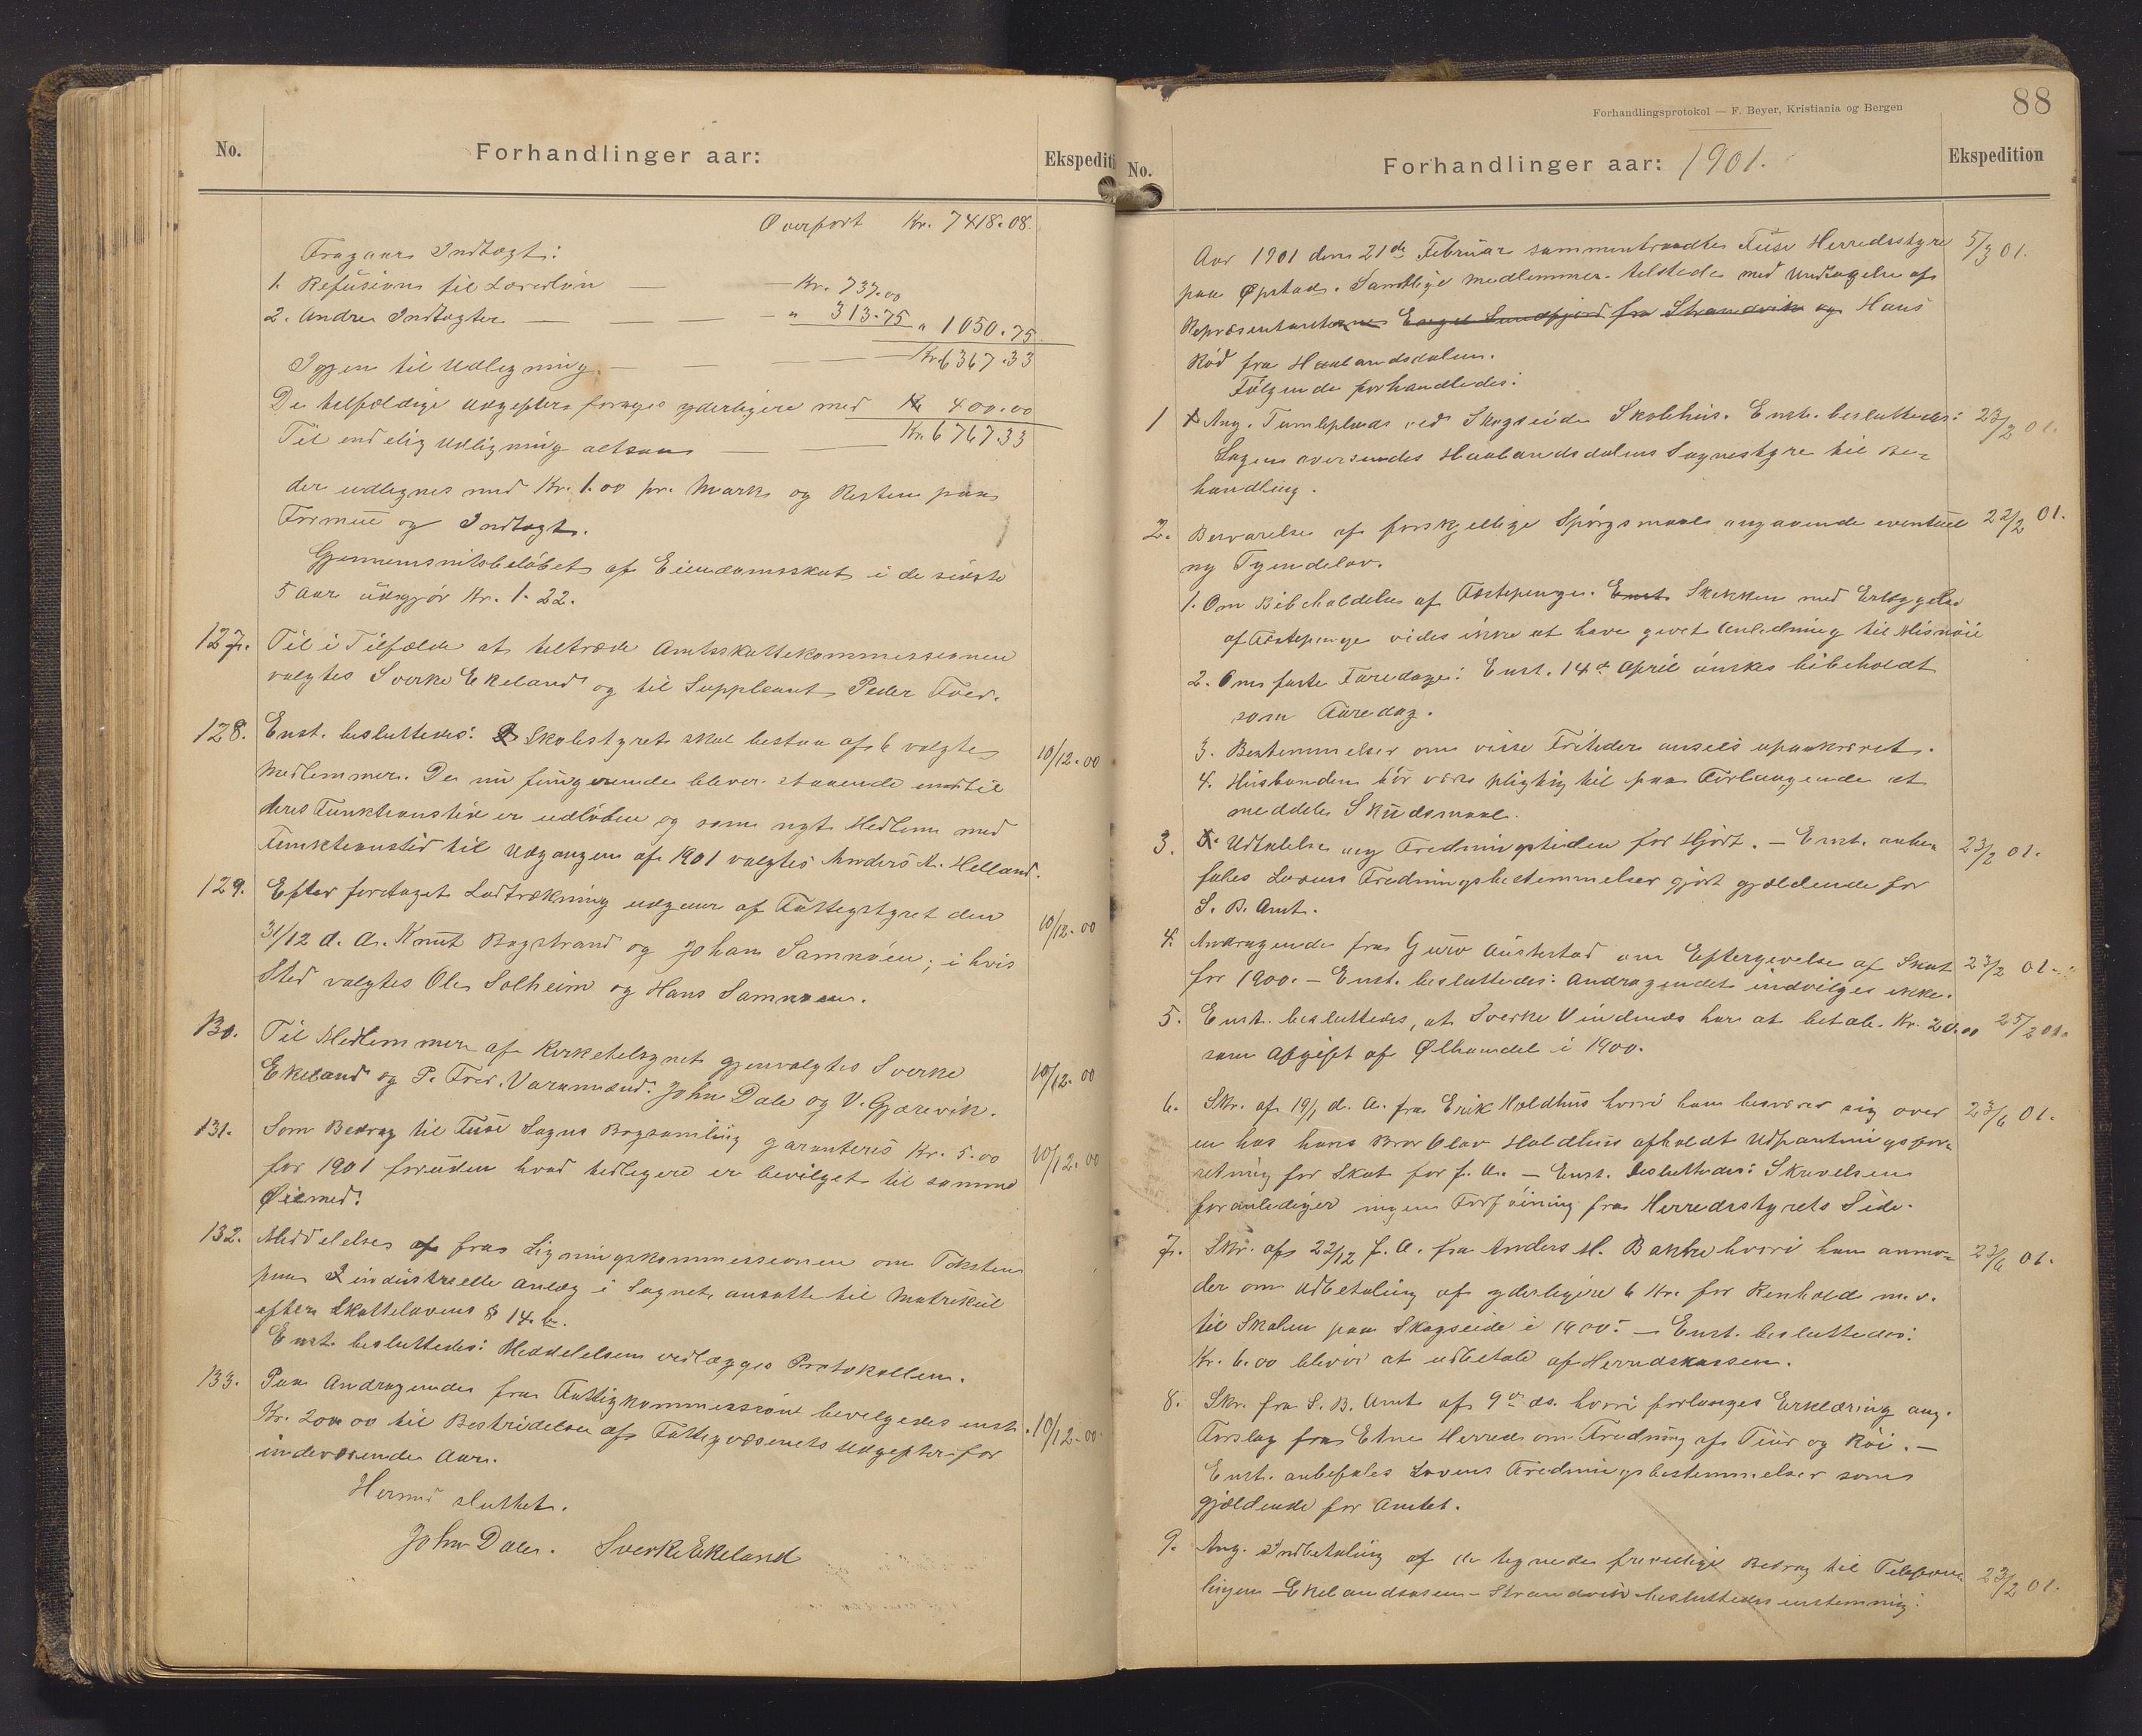 No.
Forhandlinger aar:
Ekspediti
Overført Kr. 7418.08.
Fragaar Indtægt:
1. Refusion til Lærerløn — Kr. 737.00
2. Andre Indtægter — — — " 313.75 " 1050.75
Igjen til Udligning — — — Kr. 6367.33
De tilfældige Udgifter forøges yderligere med Kr 400.00
Til endelig Udligning altsaa — — Kr. 6767.33
der udlignes med Kr. 1.00 pr. Mark og Resten paa
Formue og Indtægt.
Gjennemsnitsbeløbet af Eiendomsskat i de sidste
5 Aar udgjør Kr. 1.22.
127. Til i Tilfælde at tiltræde Amtsskattekommissionen
valgtes Sverke Ekeland og til Suppleant Peder Fred.
128. Enst. besluttedes: Skolestyret skal bestaa af 6 valgte 10/12.00
Medlemmer. De nu fungerende bliver staaende indtil
deres Funktionstid er udløben og som nyt Medlem med
Funktionstid til Udgangen af 1901 valgtes Anders N. Helland.
129. Efter foretaget Lodtrækning udgaar af Fattigstyret den 10/12.00
31/12 d. A. Knut Bogstrand og Johan Samnøen; i hvis
Sted valgtes Ole Solheim og Hans Samnøen.
130. Til Medlemmer af Kirketilsynet gjenvalgtes Sverke 10/12.00
Ekeland og P. Fred. Varamænd: John Dale og V. Gjærevik.
131. Som Bedrag til Fuse Sogns Bogsamling garanteres Kr. 5.00 10/12.00
for 1901 foruden hvad tidligere er bevilget til samme
Øiemed.
132. Meddelelse fra Ligningskommissionen om Taksten
paa industrielle Anlæg i Sognet ansatte til Matrikul
efter Skattelovens § 14 b.
Enst. besluttedes: Meddelelsen vedlægges Protokollen.
133. Paa Andragende fra Fattigkommissionen bevilgedes enst. 10/12.00
Kr. 200.00 til Bestridelse af Fattigvæsenets Udgifter for
indeværende Aar.
Hermed sluttet.
John Dale. Sverke Ekeland
Forhandlingsprotokol — F. Beyer, Kristiania og Bergen
88
No.
Forhandlinger aar: 1901.
Ekspedition
Aar 1901 den 21de Februar sammentraadte Fuse Herredsstyre 5/3 01.
paa Øpstad. Samtlige Medlemmer tilstede med Undtagelse af
Repræsentanterne Engel Sundfjord fra Strandvik og Hans
Rød fra Haalandsdalen.
Følgende forhandledes:
1 Ang. Tumleplads ved Skogseide Skolehus. Enst. besluttedes: 23/2 01.
Sagen oversendes Haalandsdalens Sognestyre til Be-
handling.
2. Besvarelse af forskjellige Spørgsmaal angaaende eventuel 23/2 01.
ny Tyendelov.
1. Om Bibeholdelse af Fæstepenge. Enst. Skikken med Erlæggelse
af Fæstepenge vides ikke at have givet Anledning til Misnøie
2. Om faste Faredage: Enst. 14de April ønskes bibeholdt
som Faredag.
3. Bestemmelser om visse Fritider ansees upaakrævet.
4. Husbonden bør være pligtig til paa Forlangende at
meddele Skudsmaal.
3. Udtalelse ang Fredningstiden for Hjort. — Enst. anbe- 23/2 01.
fales Lovens Fredningsbestemmelser gjort gjældende for
S. B. Amt.
4. Andragende fra Guro Austestad om Eftergivelse af Skat 23/2 01.
for 1900. — Enst. besluttedes: Andragendet indvilges ikke.
5. Enst. besluttedes, at Sverke Vindenes har at betale Kr. 20.00 25/2 01.
som Afgift af Ølhandel i 1900.
6. Skr. af 19/1 d. A. fra Erik Holdhus hvori han besværer sig over 23/6 01.
en hos hans Bror Olav Holdhus afholdt Udpantningsfor-
retning for Skat for f. A. — Enst. besluttedes: Skrivelsen
foranlediger ingen Forføining fra Herredsstyrets Side.
7. Skr. af 22/12 f. A. fra Anders M. Bakke hvori han anmo- 23/6 01.
der om Udbetaling af yderligere 6 Kr. for Renhold m. v.
til Skolen paa Skogseide i 1900. — Enst. besluttedes:
Kr. 6.00 bliver at udbetale af Herredskassen.
8. Skr. fra S. B. Amt af 9de ds. hvori forlanges Erklæring ang.
Forslag fra Etne Herred om Fredning af Tiur og Røi. —
Enst. anbefales Lovens Fredningsbestemmelser som
gjældende for Amtet.
9. Ang. Indbetaling af de tegnede frivillige Bedrag til Telefon- 23/2 01.
linjen Ekelandsosen - Strandvik besluttedes enstemmig: